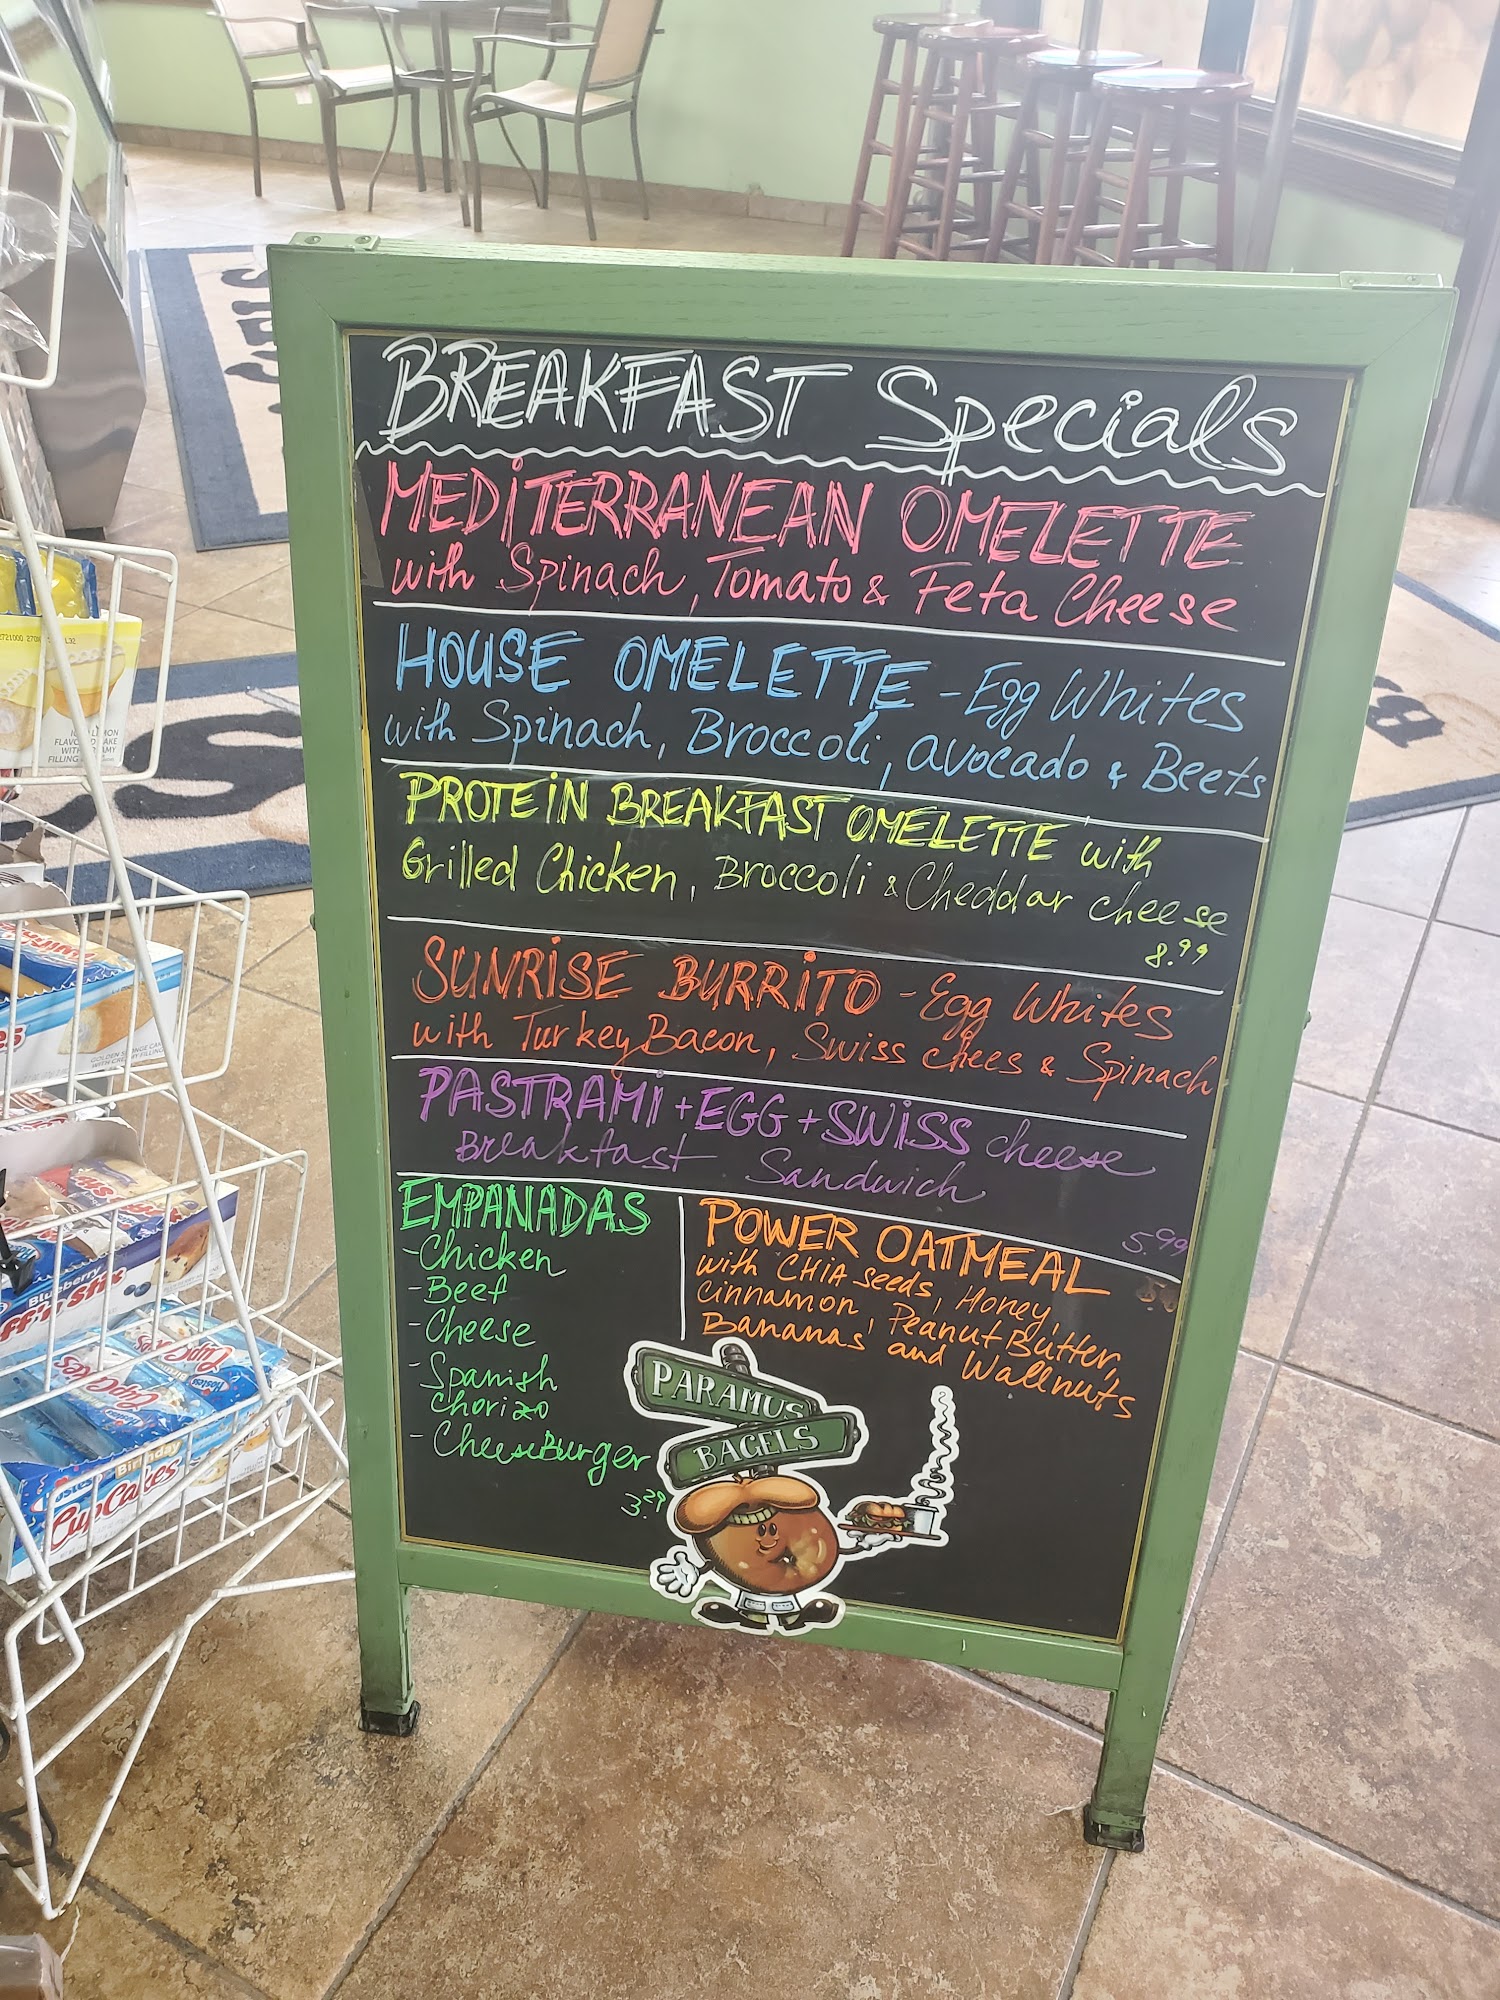 BREAKFAST Specials
MEDITERRANEAN OMELETTE
with Spinach, Tomato & Feta Cheese
HOUSE OMELETTE - Egg Whites
with Spinach, Broccoli, avocado & Beets
PROTEIN BREAKFAST OMELETTE with
Grilled Chicken, Broccoli & Cheddar cheese
8.99
SUNRISE BURRITO - Egg Whites
with Turkey Bacon, Swiss chees & Spinach
PASTRAMI + EGG + SWISS cheese
Breakfast Sandwich
5.99
EMPANADAS
- Chicken
- Beef
- Cheese
- Spanish
Chorizo
- CheeseBurger
3.29
POWER OATMEAL
with CHIA seeds, Honey,
cinnamon, Peanut Butter,
Bananas and Wallnuts
PARAMUS
BAGELS
Blueberry
CupCakes
CupCakes
Hostess
Birthday
CupCakes